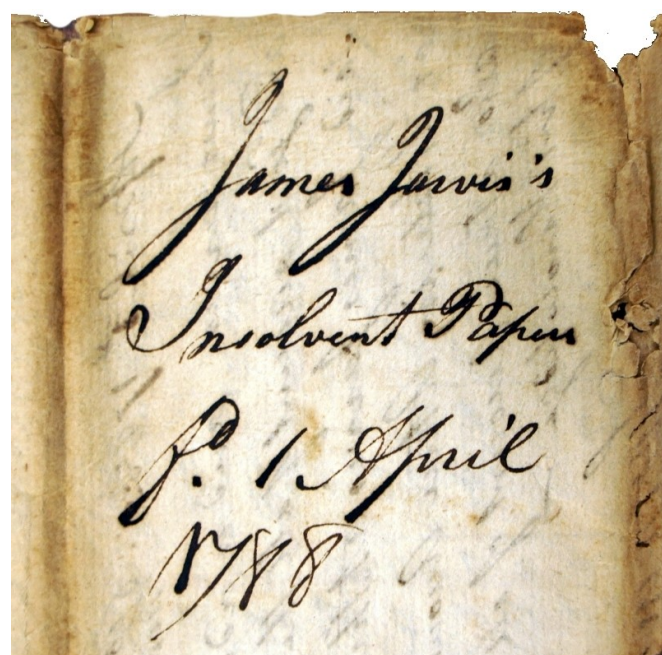 James Jarvis's
Insolvent Papers
fd. 1 April
1788